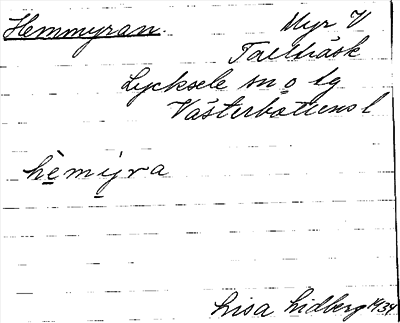 Hemmyran. Myr V
Tallträsk
Lycksele sn o tg
Västerbottens l
hèmýra
Lisa Lidberg 1934